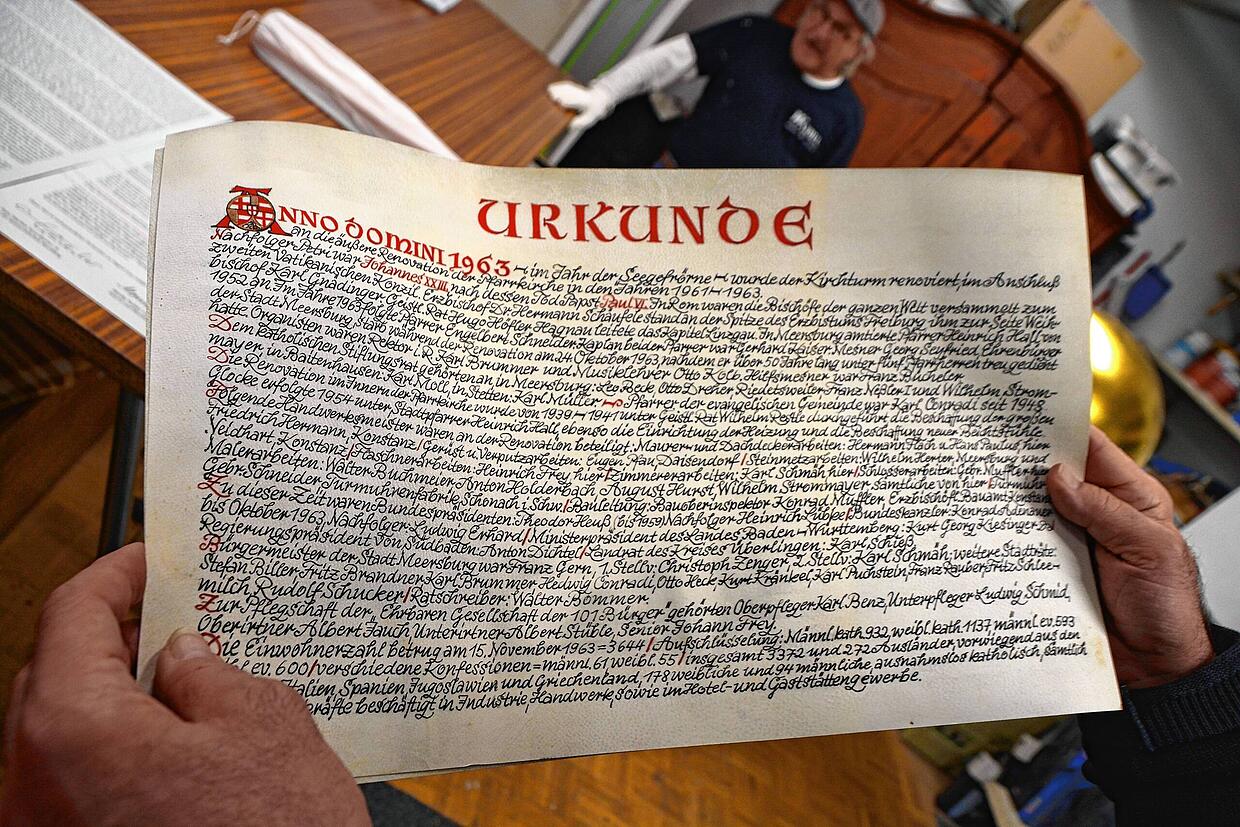 URKUNDE
ANNO DOMINI 1963 - im Jahr der Seegefrörne - wurde der Kirchturm renoviert, im Anschluß
an die äußere Renovation der Pfarrkirche in den Jahren 1961-1963.
Nachfolger Petri war Johannes XXIII, nach dessen Tod Papst Paul VI. In Rom waren die Bischöfe der ganzen Welt versammelt zum
zweiten Vatikanischen Konzil. Erzbischof Dr. Hermann Schäufele stand an der Spitze des Erzbistums Freiburg ihm zur Seite Weih-
bischof Karl Gnädinger. Geistl. Rat Hugo Höfler Hagnau leitete das Kapitel Linzgau. In Meersburg amtierte Pfarrer Heinrich Hall von
1952 an. Im Jahre 1963 folgte Pfarrer Engelbert Schneider Kaplan beider Pfarrer war Gerhard Kaiser. Mesner Georg Seyfried, Ehrenbürger
der Stadt Meersburg, starb während der Renovation am 24. Oktober 1963, nachdem er über 50 Jahre lang unter fünf Pfarrherren treu gedient
hatte. Organisten waren Rektor i. R. Karl Brummer und Musiklehrer Otto Kolb, Helfsmesner war Franz Bücheler.
Dem Katholischen Stiftungsrat gehörten an in Meersburg: Leo Beck, Otto Dreher, Riedetsweiler Franz Neßler und Wilhelm Strom-
mayer, in Baitenhausen: Karl Moll, in Stetten: Karl Müller Pfarrer der evangelischen Gemeinde war Karl Conradi seit 1943.
Die Renovation im Innern der Pfarrkirche wurde von 1939-1941 unter Geistl. Rat Wilhelm Restle durchgeführt, die Beschaffung der großen
Glocke erfolgte 1954 unter Stadtpfarrer Heinrich Hall, ebenso die Einrichtung der Heizung und die Beschaffung neuer Beichtstühle.
Folgende Handwerksmeister waren an der Renovation beteiligt: Maurer- und Dachdeckerarbeiten: Hermann Flach u. Hans Paul, hier
Friedrich Hermann, Konstanz/Gerüst u. Verputzarbeiten: Eugen Jau, Daisendorf/Steinmetzarbeiten: Wilhelm Herter, Meersburg und
Veldhart, Konstanz/Flaschnerarbeiten: Heinrich Frey, hier/Zimmererarbeiten: Karl Schmäh hier/Schlosserarbeiten: Gebr. Muffler hier
Malerarbeiten: Walter Buchmeier, Anton Holderbach, August Hurst, Wilhelm Strommayer, sämtliche von hier/Turmuhr:
Gebr. Schneider Turmuhrenfabrik, Schonach i. Schw./Bauleitung: Bauoberinspektor Konrad Muffler Erzbischöfl. Bauamt Konstanz
Zu dieser Zeit waren Bundespräsidenten: Theodor Heuß (bis 1959) Nachfolger Heinrich Lübke/Bundeskanzler Konrad Adenauer
bis Oktober 1963, Nachfolger: Ludwig Erhard/Ministerpräsident des Landes Baden-Württemberg: Kurt Georg Kiesinger
Regierungspräsident von Südbaden: Anton Dichtel/Landrat des Kreises Überlingen: Karl Schieß.
Bürgermeister der Stadt Meersburg war Franz Gern, 1. Stellv. Christoph Zenger, 2. Stellv. Karl Schmäh, weitere Stadträte:
Stefan Biller, Fritz Brandner, Karl Brummer, Hedwig Conradi, Otto Heck, Kurt Kränkel, Karl Puchstein, Franz Rauber, Fritz Schlee-
milch, Rudolf Schucker/Ratschreiber: Walter Bommer.
Zur Pflegschaft der „Ehrbaren Gesellschaft der 101 Bürger" gehörten Oberpfleger Karl Benz, Unterpfleger Ludwig Schmid,
Oberirtner Albert Jauch, Unterirtner Albert Stüble, Senior Johann Frey.
Die Einwohnerzahl betrug am 15. November 1963 = 3644/Aufschlüsselung: Männl. kath. 932, weibl. kath. 1137, männl. ev. 593
ev. 600/verschiedene Konfessionen = männl. 61 weibl. 55/insgesamt 3372 und 272 Ausländer, vorwiegend aus den
Italien, Spanien, Jugoslawien und Griechenland, 178 weibliche und 94 männliche, ausnahmslos katholisch, sämtlich
kräfte beschäftigt in Industrie, Handwerk, sowie im Hotel- und Gaststättengewerbe.